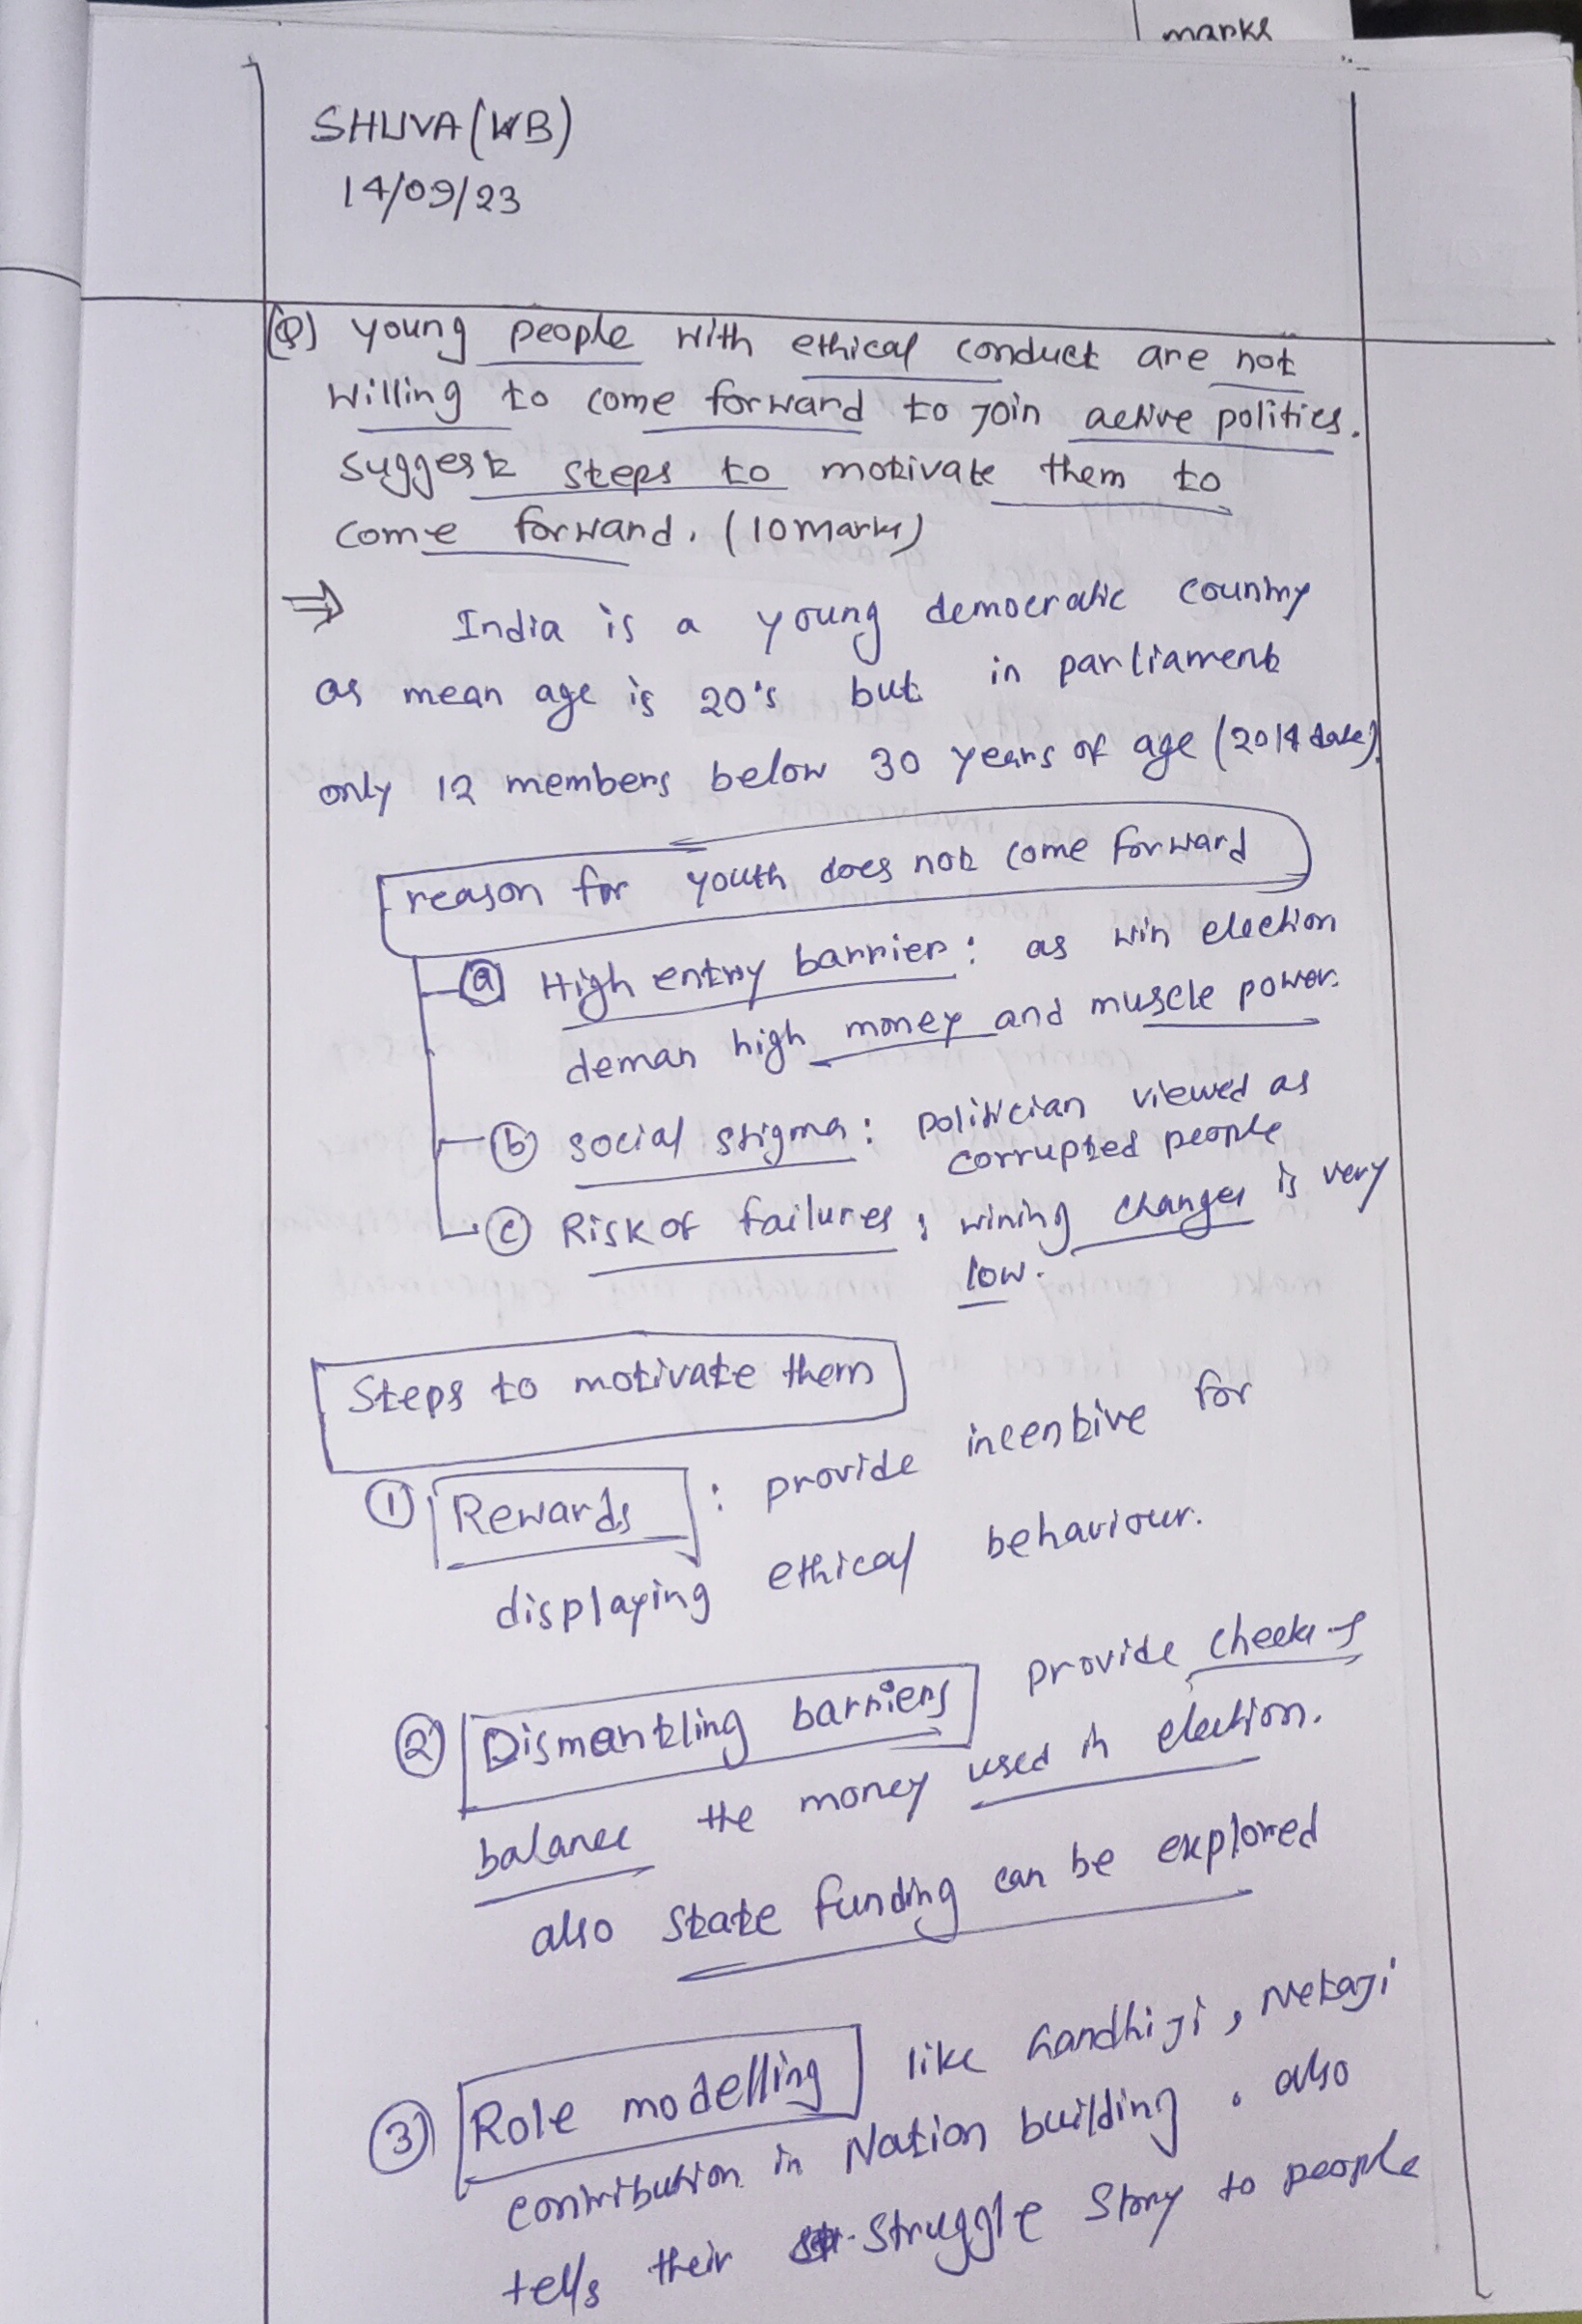 marks
SHUVA (WB)
14/09/23
(Q) young people with ethical conduct are not
willing to come forward to join active politics.
suggest steps to motivate them to
come forward. (10 marks)
⇒ India is a young democratic country
as mean age is 20's but in parliament
only 12 members below 30 years of age (2014 date)
reason for youth does not come forward
(a) High entry barrier: as win election
deman high money and muscle power.
(b) social stigma: politician viewed as
corrupted people
(c) Risk of failures; wining changes is very
low.
Steps to motivate them
(1) Rewards: provide incentive for
displaying ethical behaviour.
(2) Dismantling barriers provide checks &
balance the money used in election.
also state funding can be explored
(3) Role modelling like Gandhiji, Netaji
contribution in Nation building. also
tells their struggle story to people